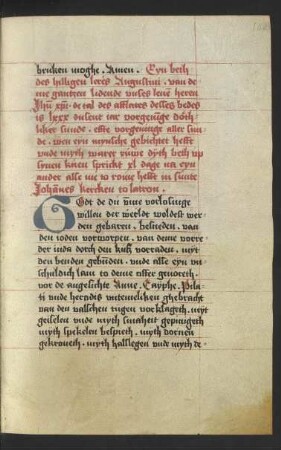 bruken moghe. Amen. Eyn beth
des hilligen lerers Augustini. van de
me gantzen lidende vnses leuē heren
is lxxx dusent iar vorgeuige dotli
ker sunde. vorgeuinge aller sun
de. wen eyn mynsche gebichtet hefft
vnde myth warer ruwe dyth beth up
synen knen spricket xl dage na eyn
ander alse me to rome hefft in sunte
Johānes kercken to latron.
God de du vmme vorlosinge
willen der werlde woldest wer
den gebaren. besneden. van
den ioden vorworpen. van deme vorre
der iuda dorch den kuss vorraden. myt
den benden gebūden. vnde alse eyn vn
schuldich lam to deme offer gevoreth.
vor de angesichte Anne. Cayphe. Pila
ti vnde herodes vntemeliken ghebracht
van den valschen tugen vorklageth. myt
geiselen vnde myt smaheit gepyniget
myth spekelen bespiet. myth dornen
gekroneth. myth halsslegen vnde myth de